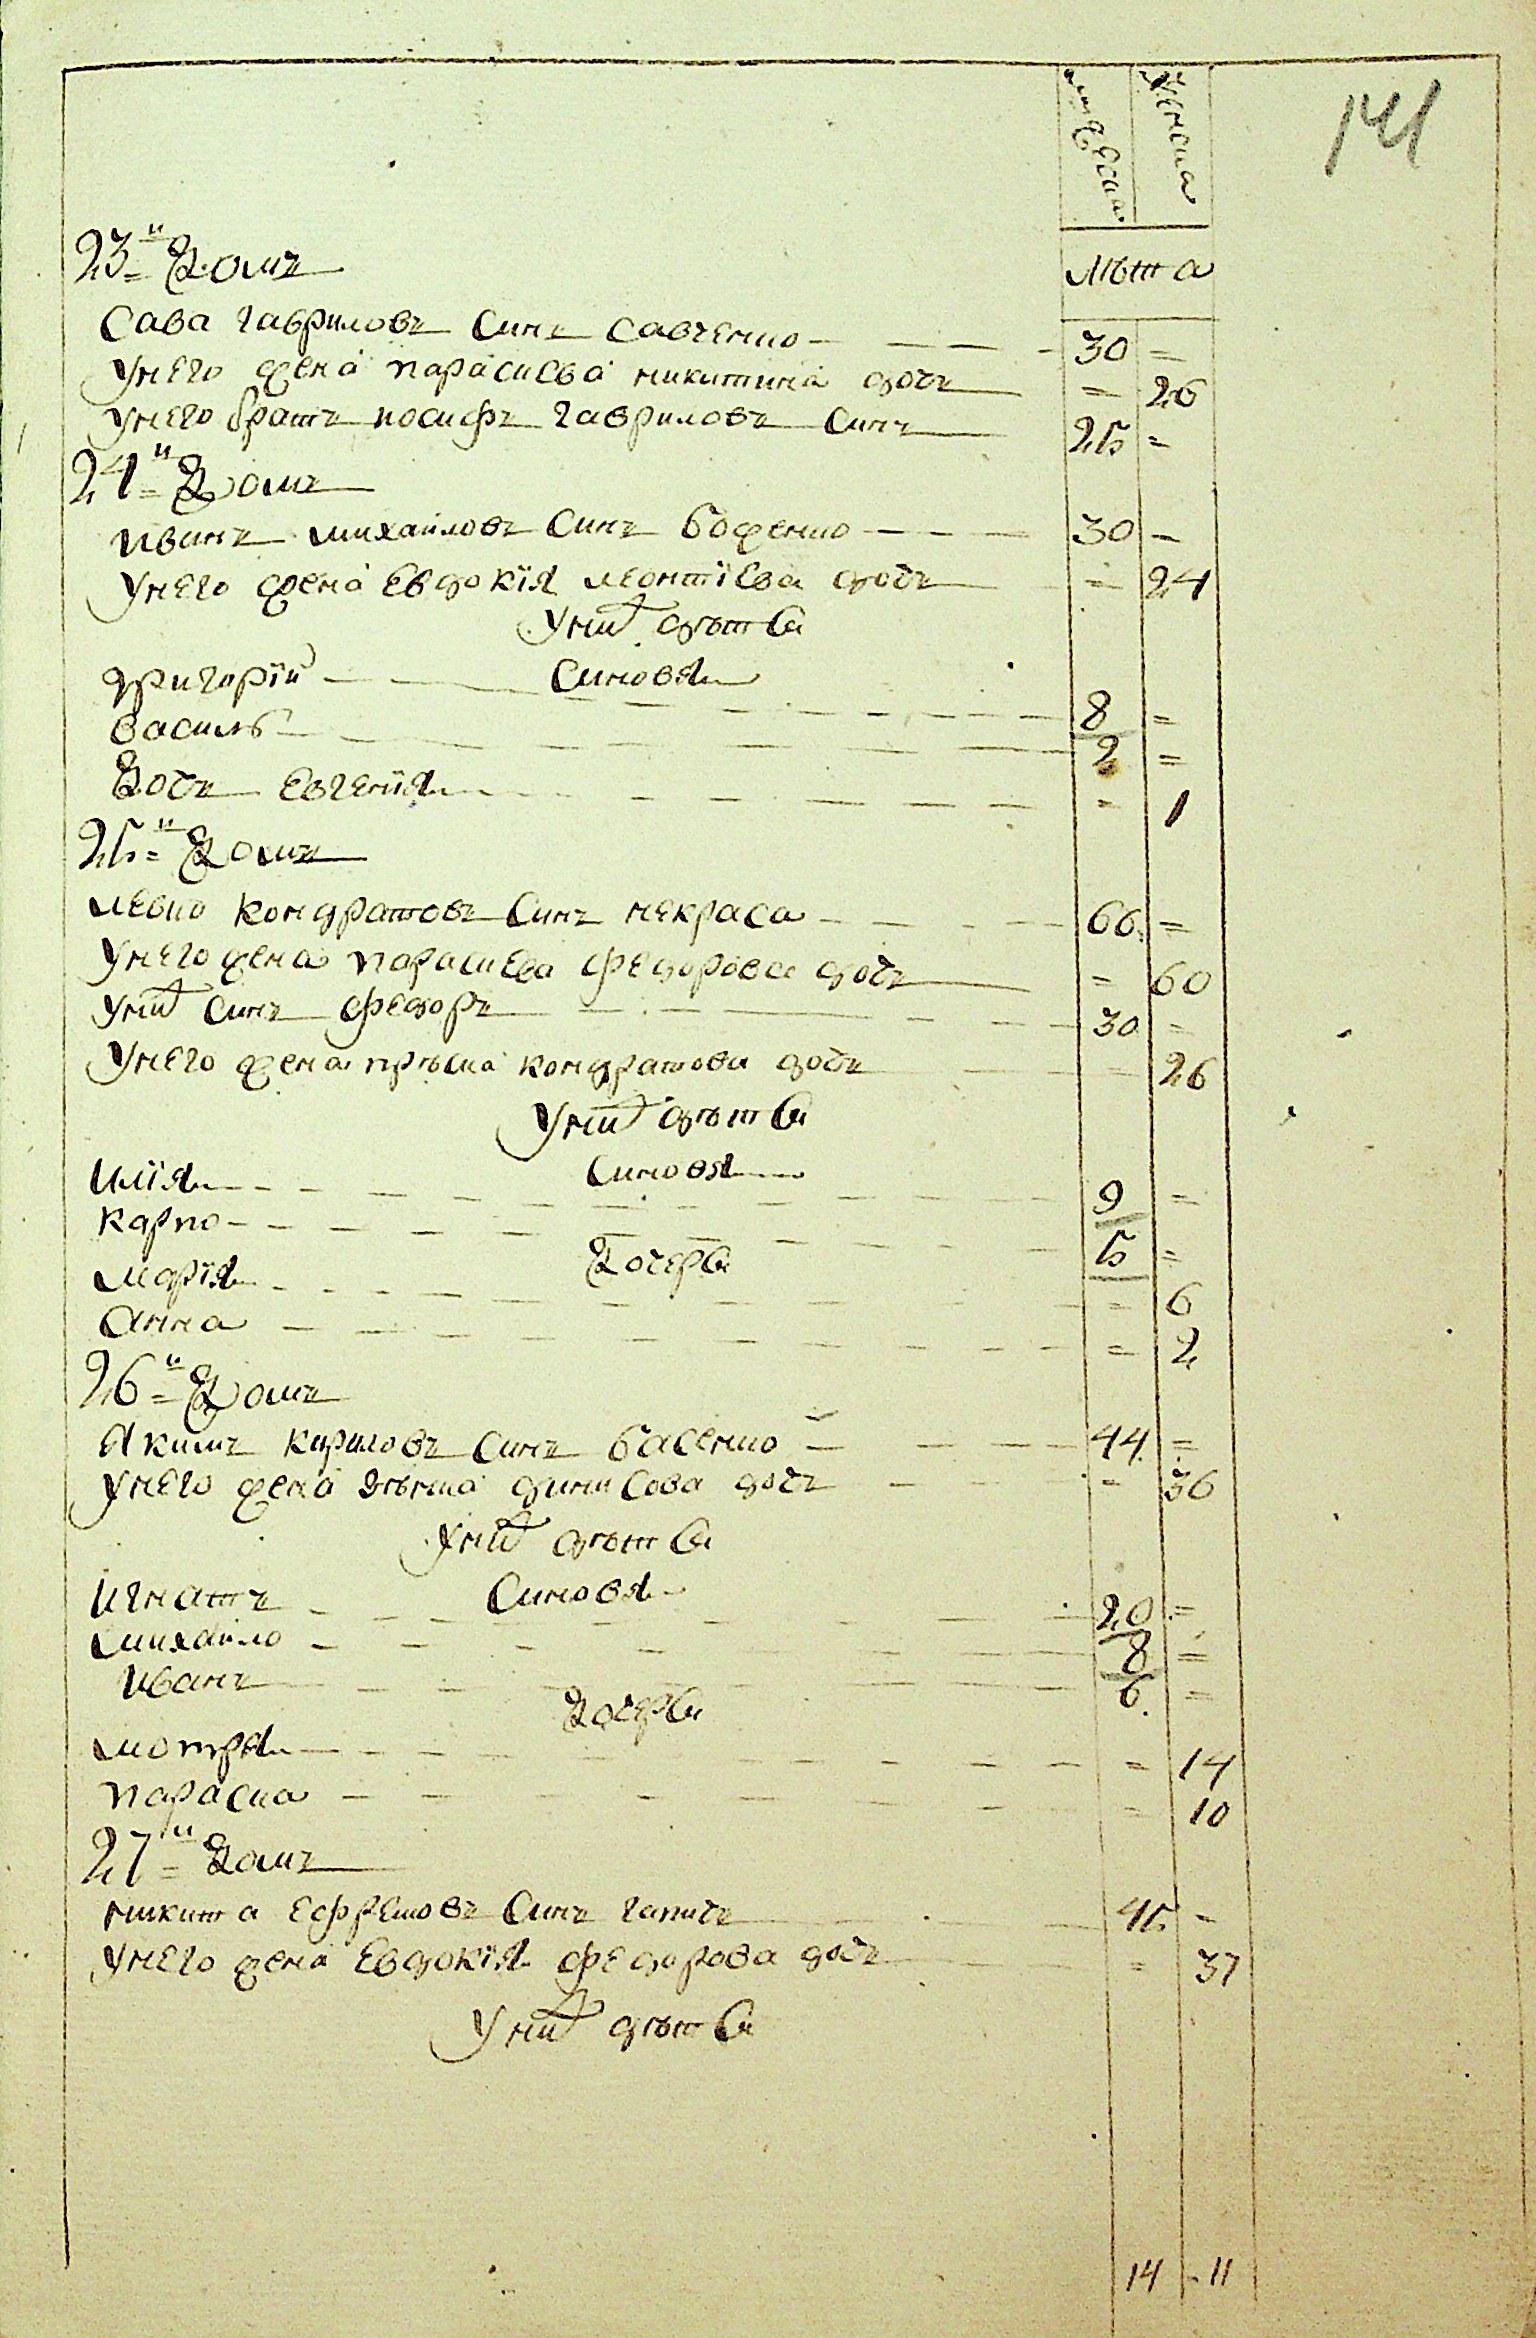 141
мужеска женска
23й домъ
лѣта
Сава Гавриловъ синъ Савченко 30 =
У него жена Параскева Никитина дочь = 26
У него братъ Иосифъ Гавриловъ синъ 25 =
24й домъ
Иванъ Михайловъ синъ Боженко 30 =
У него жена Евдокїя Леонтїева дочь = 24
У нихъ дѣти
синовя
Григорїй 8 =
Василь 2 =
Дочь Евгенїя = 1
25й домъ
Левко Кондратовъ синъ Некраса 66 =
У него жена Параскева Федорова дочь = 60
У нихъ синъ Федоръ 30 =
У него жена Прѣська Кондратова дочь = 26
У нихъ дѣти
синовя
Илїя 9 =
Карпо 5 =
дочери
Марїя = 6
Анна = 2
26й домъ
Якимъ Кириловъ синъ Басенко 44 =
У него жена Динисова дочь = 36
У нихъ дѣти
синовя
Игнатъ 20 =
Михайло 8 =
Иванъ 6 =
дочери
Мотря = 14
Параска = 10
27й домъ
Никита Ефремовъ синъ Гапичъ 45 =
У него жена Евдокїя Федорова дочь = 37
У нихъ дѣти
14 - 11